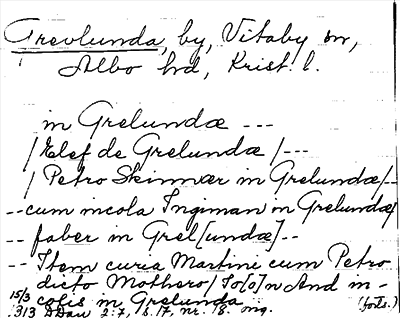 Grevlunda, by, Vitaby sn,
Albo hd, Krist. l.
in Grelundæ ---
/Elef de Grelundæ /---
/ Petro Skinnær in Grelundæ/--
--cum incola Ingiman in Grelundæ/
-- faber in Grel[undæ]--
-- Item curia Martini cum Petro
dicto Mothero/ Jo[o]n And in-
15/3 colis in Grelunda
313 DDan 2:7, s. 17, nr. 18. orig. (forts.)